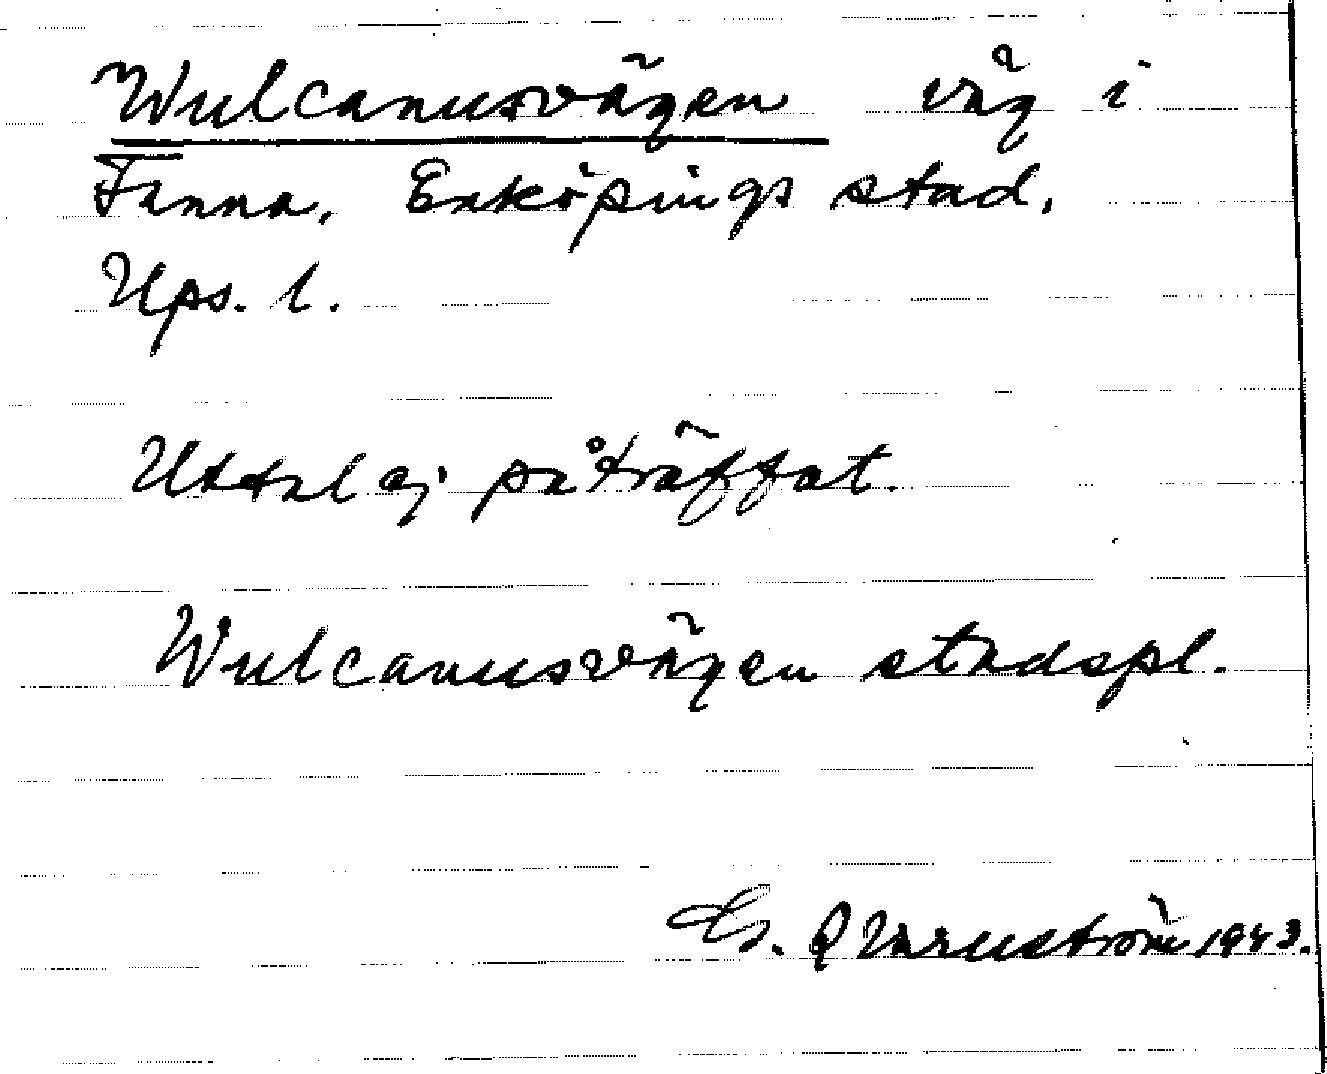 Wulcanusvägen väg i
Fanna, Enköpings stad,
Ups. l.
Uttal ej påträffat.
Wulcanusvägen stadspl.
G. Qvarnström 1943.